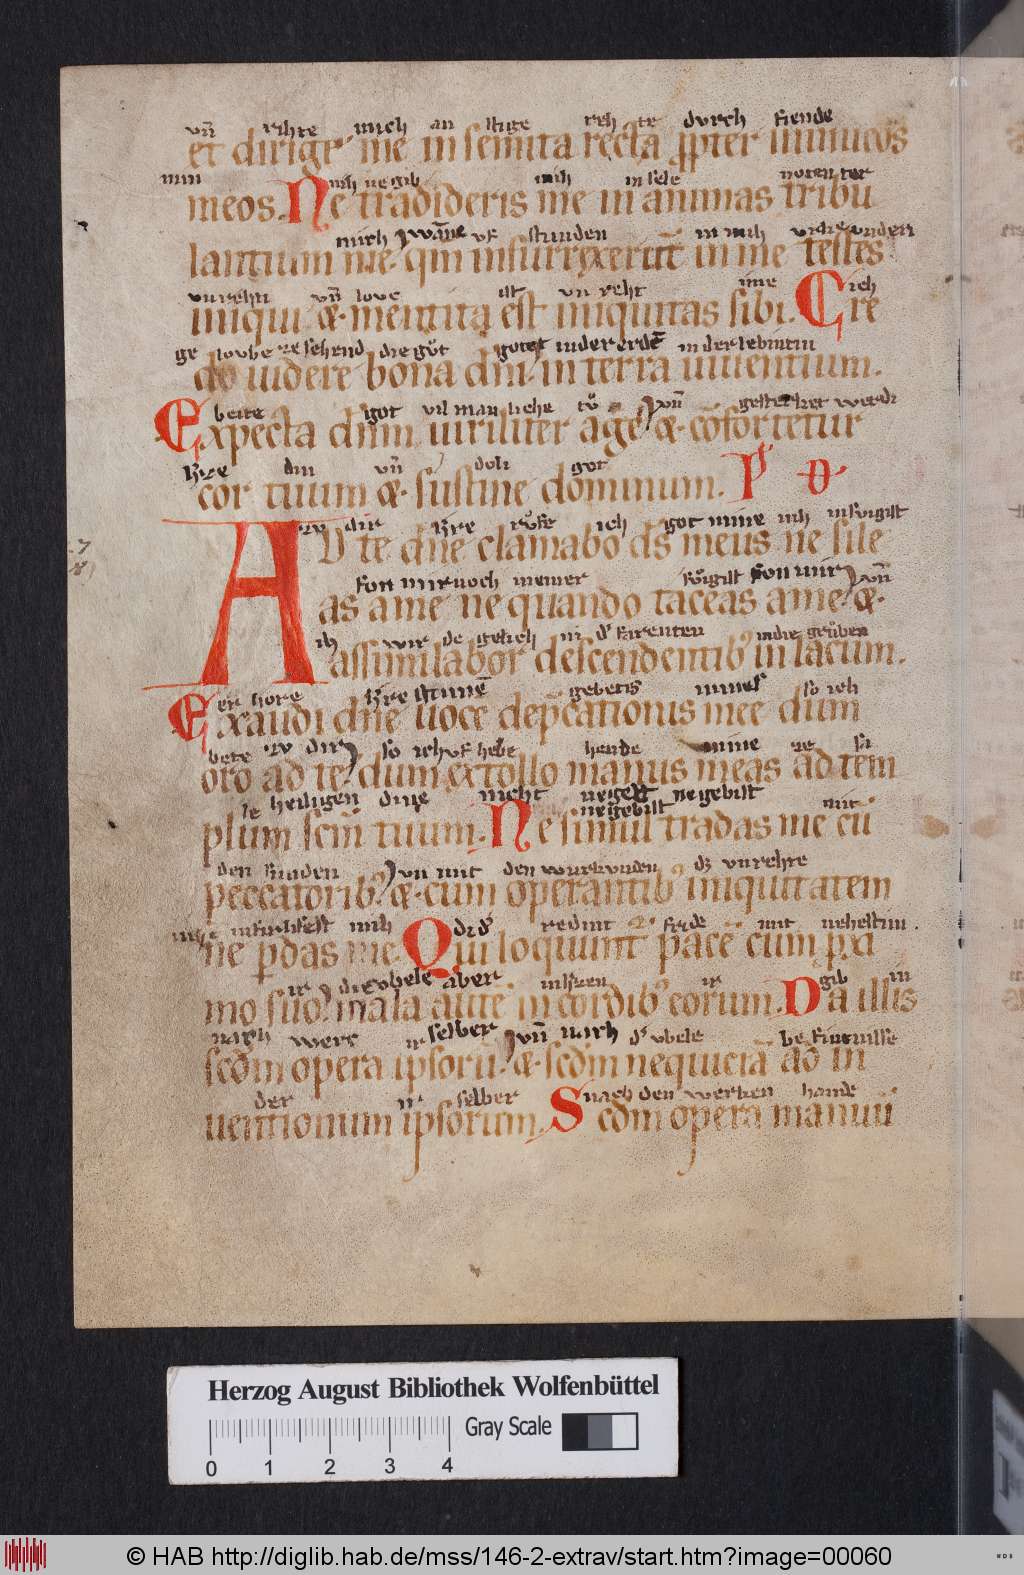 vn̄ rihte mich an stige reh te dvrch fiende
et dirige me in semita recta ꝓpter inimicos
min mih ne gib mih in sele
meos. Ne tradideris me in animas tribu
mich wāne vf stunden in mih
lantium me. qm̄ insurrexerūt in me testes
vn rehti vn̄ love ist vn reht ime ich
iniqui ⁊ mentita est iniquitas sibi. Cre
ge loube ze sehend die gůt gotes in der erdē in der lebintin
do uidere bona dn̄i in terra uiuentium.
beite got vil manliche tů vn̄ gesterket werde
Expecta dn̄m uiriliter age ⁊ cōfortetur
h'ze din vn̄ doli got
cor tuum ⁊ sustine dominum. Ps D
zv dir h're růfe ich got mine nih
AD te dn̄e clamabo ds̄ meus ne sile
fon mir noch niemer swigist fon mir vn̄
as a me ne quando taceas a me ⁊
ih wir de gelich in d' farenten in die grůben
assimilabor descendentib; in lacum.
er hore h're stimē gebetis mines so ich
Exaudi dn̄e uocē dep̄cationis mee dum
bete zv dir so ich vf hebe hende mine ze
oro ad te dum extollo manus meas ad tem
heiligen dime nicht negebist
plum sc̄m tuum. Ne simul tradas me cū
den sunden vn mit den wurkunden dz vnrehte
peccatorib; ⁊ cum operantib; iniquitatem
mih
ne ꝑdas me. Qui loquunt pacē cum ꝓxi
ir die vbele aber in ir gib in
mo suo mala autē in cordib; eorum. Da illis
nach werc ir selber vn̄ nach d' vbele
scd̄m opera ipsorū. ⁊ scd̄m nequiciā ad in
der ir selber nach den werken hande
uentionum ipsorum. Scd̄m opera manuū
Herzog August Bibliothek Wolfenbüttel
Gray Scale
0 1 2 3 4
© HAB http://diglib.hab.de/mss/146-2-extrav/start.htm?image=00060